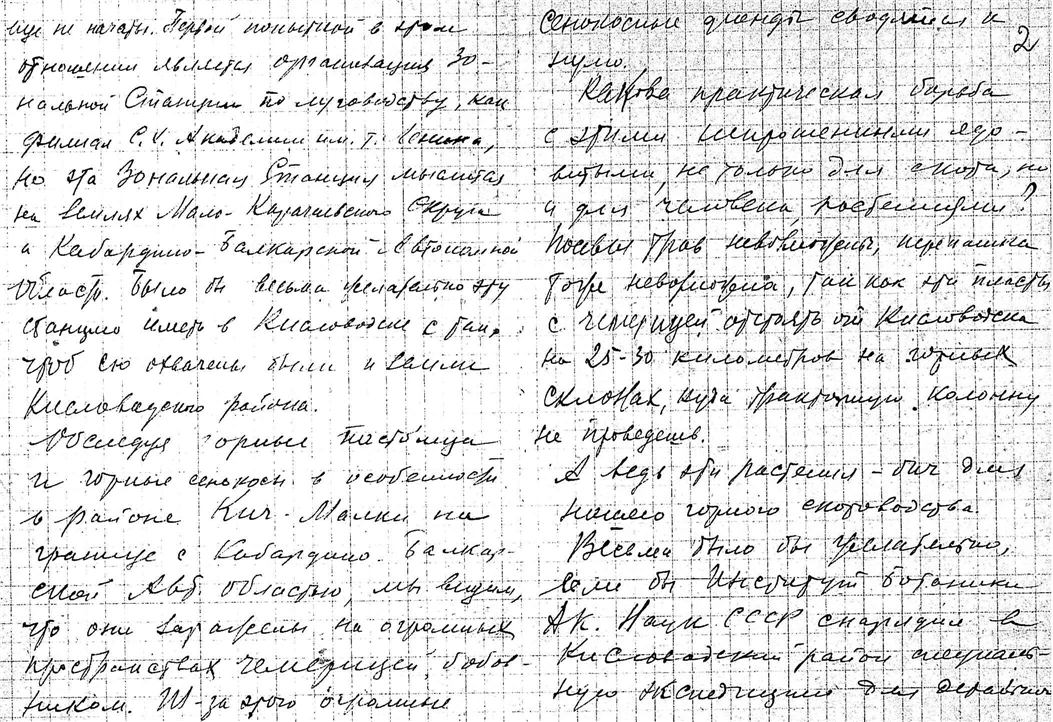 еще не начаты. Первой попыткой в этом
отношении является организация Зо-
нальной Станции по луговодству, как
филиал С.Х. Академии им. т. Ленина,
но эта Зональная Станция мыслится
на землях Мало-Карачаевского Округа
и Кабардино-Балкарской Автономной
Области. Было бы весьма желательно эту
станцию иметь в Кисловодске с тем,
чтоб ею охвачены были и земли
Кисловодского района.
Обследуя горные пастбища
и горные сенокосы в особенности
в районе Кич-Малки на
границе с Кабардино-Балкар-
ской Авт. Областью, мы видим,
что они заражены на огромных
пространствах чемерицей, бобов-
ником. Из-за этого огромные
2
сенокосные угодья сводятся к
нулю.
Какова практическая борьба
с этими непрошенными ядо-
витыми, не только для скота, но
и для человека растениями?
Посевы трав невозможны, перепашка
тоже невозможна, так как эти пласты
с чемерицей отстоят от Кисловодска
на 25-30 километров на горных
склонах, куда тракторную колонну
не проведешь.
А ведь эти растения - бич для
нашего горного скотоводства.
Весьма было бы желательно,
если бы Институт Ботаники
Ак. Наук СССР снарядил в
Кисловодский район специаль-
ную экспедицию для